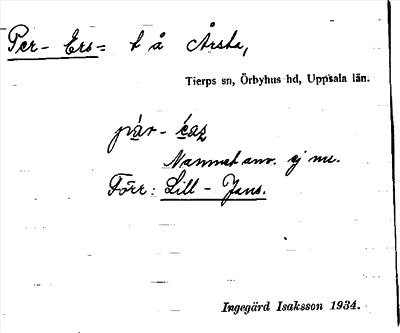 Per- Ers= t å Årsta,
Tierps sn, Örbyhus hd, Uppsala län.
pạ́r- ẹ́aʐ
Namnet anv. ej nu.
Förr: Lill - Jans.
Ingegärd Isaksson 1934.